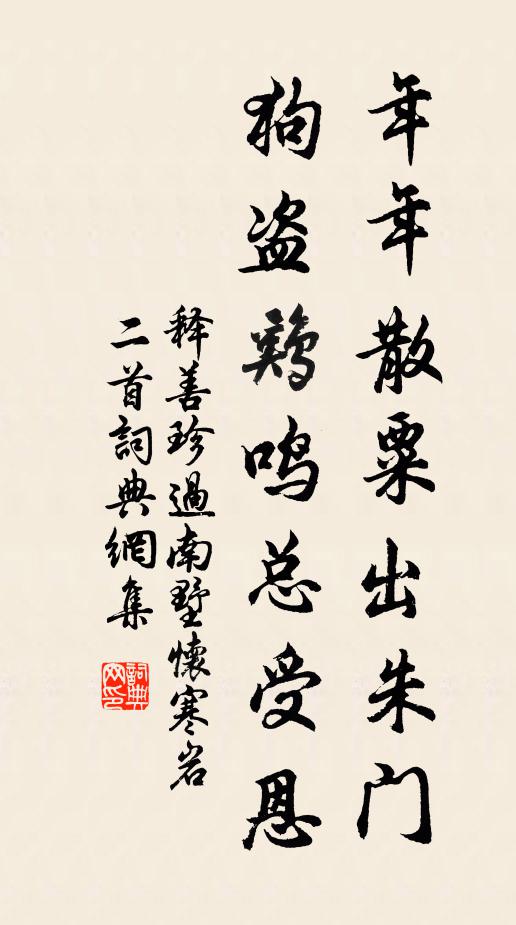 年年散粟出朱门
狗盗鸡鸣总受恩
释善珍過南墅懷寒岩
二首詞典網集
詞典网印